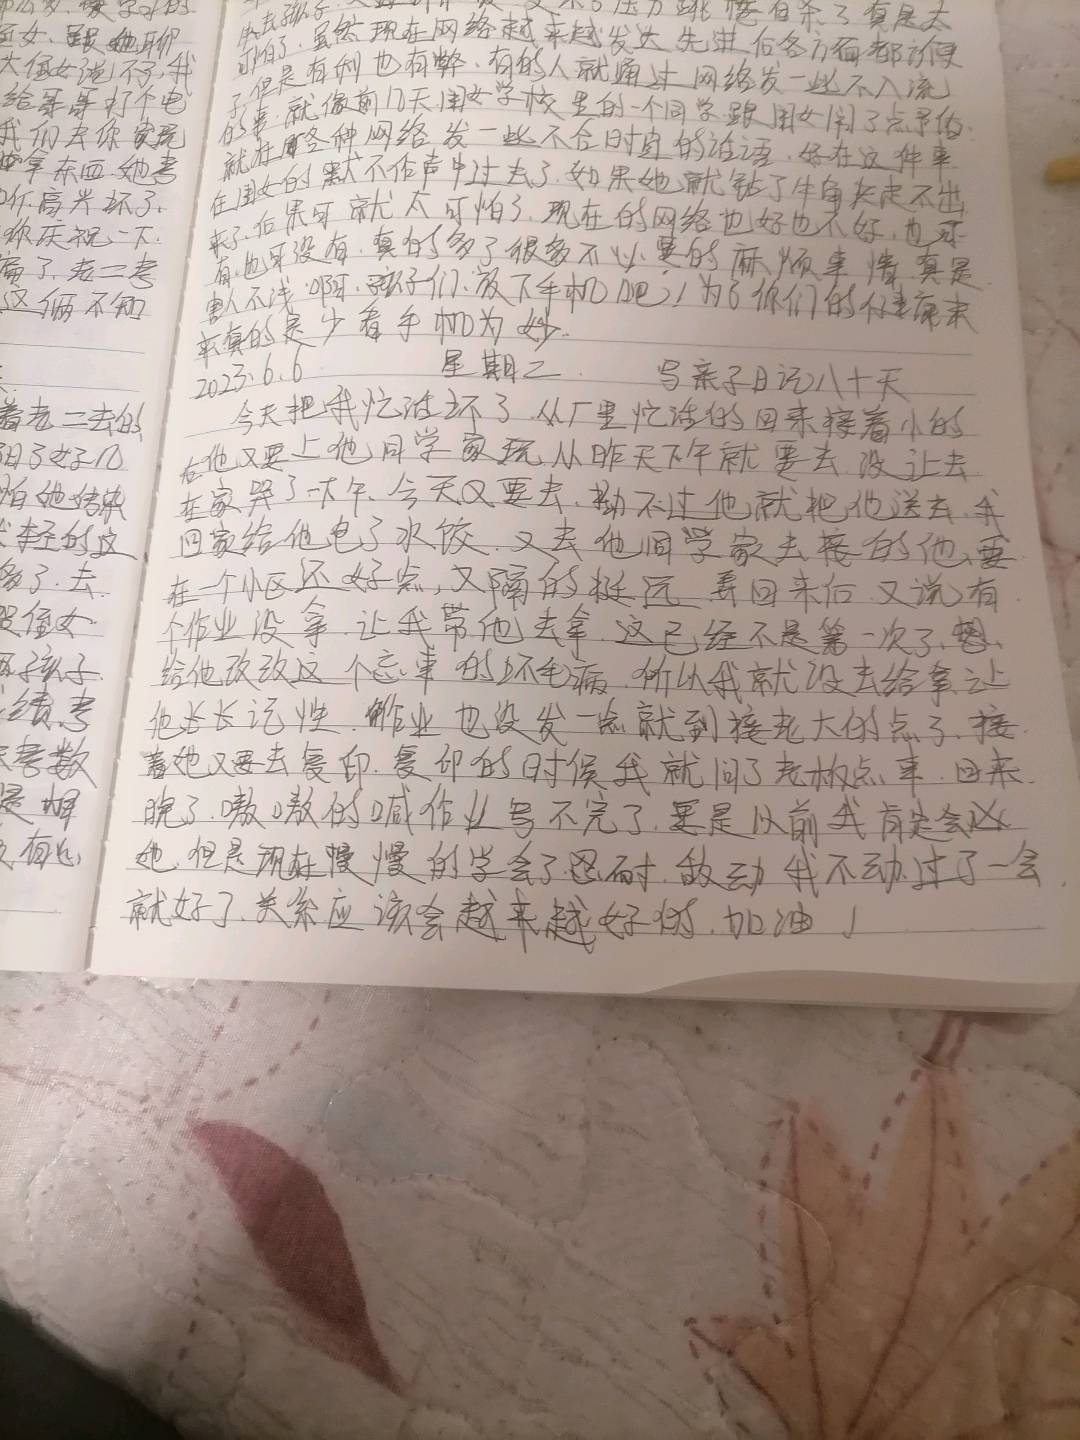 压力跳楼自杀了真是太
可怕了.虽然现在网络越来越发达先进后各方面都方便
了但是有利也有弊.有的人就通过网络发一些不入流
的事.就像前几天闺女学校里的一个同学跟闺女闹了点矛盾.
就在用各种网络发一些不合时宜的话语.好在这件事
在闺女的默不作声中过去了.如果她就钻了牛角尖走不出
来了.后果可就太可怕了.现在的网络也好也不好.也可
有也可没有.真的多了很多不必要的麻烦事情真是
害人不浅啊.孩子们.放下手机吧!为了你们的健康未
来真的是少看手机为妙.
2023.6.6 星期二. 写亲子日记八十天
今天把我忙活坏了.从厂里忙活的回来接着小的
后他又要上他同学家玩从昨天下午就要去没让去
在家哭了一下午.今天又要去.拗不过他就把他送去.我
回家给他包了水饺.又去他同学家去接的他.要
在一个小区还好点,又隔的挺远弄回来后又说有
个作业没拿.让我带他去拿.这已经不是第一次了.想
给他改改这个忘事的坏毛病.所以我就没去给拿.让
他长长记性.作业也没发一点就到接老大的点了.接
着她又要去复印.复印的时候我就问了老板点事.回来
晚了.嗷嗷的喊作业写不完了.要是以前我肯定会凶
她.但是现在慢慢的学会了忍耐.敌动我不动.过了一会
就好了.关系应该会越来越好的.加油!
侄女.跟她聊
大侄女道不了,我
给哥哥打个电
我们去你家玩
拿东西.她考
高兴坏了.
你庆祝一下.
了.老二考
这俩不知
着老二去的
怕她结束
多了.去.
侄女
孩子
绩.考
考数